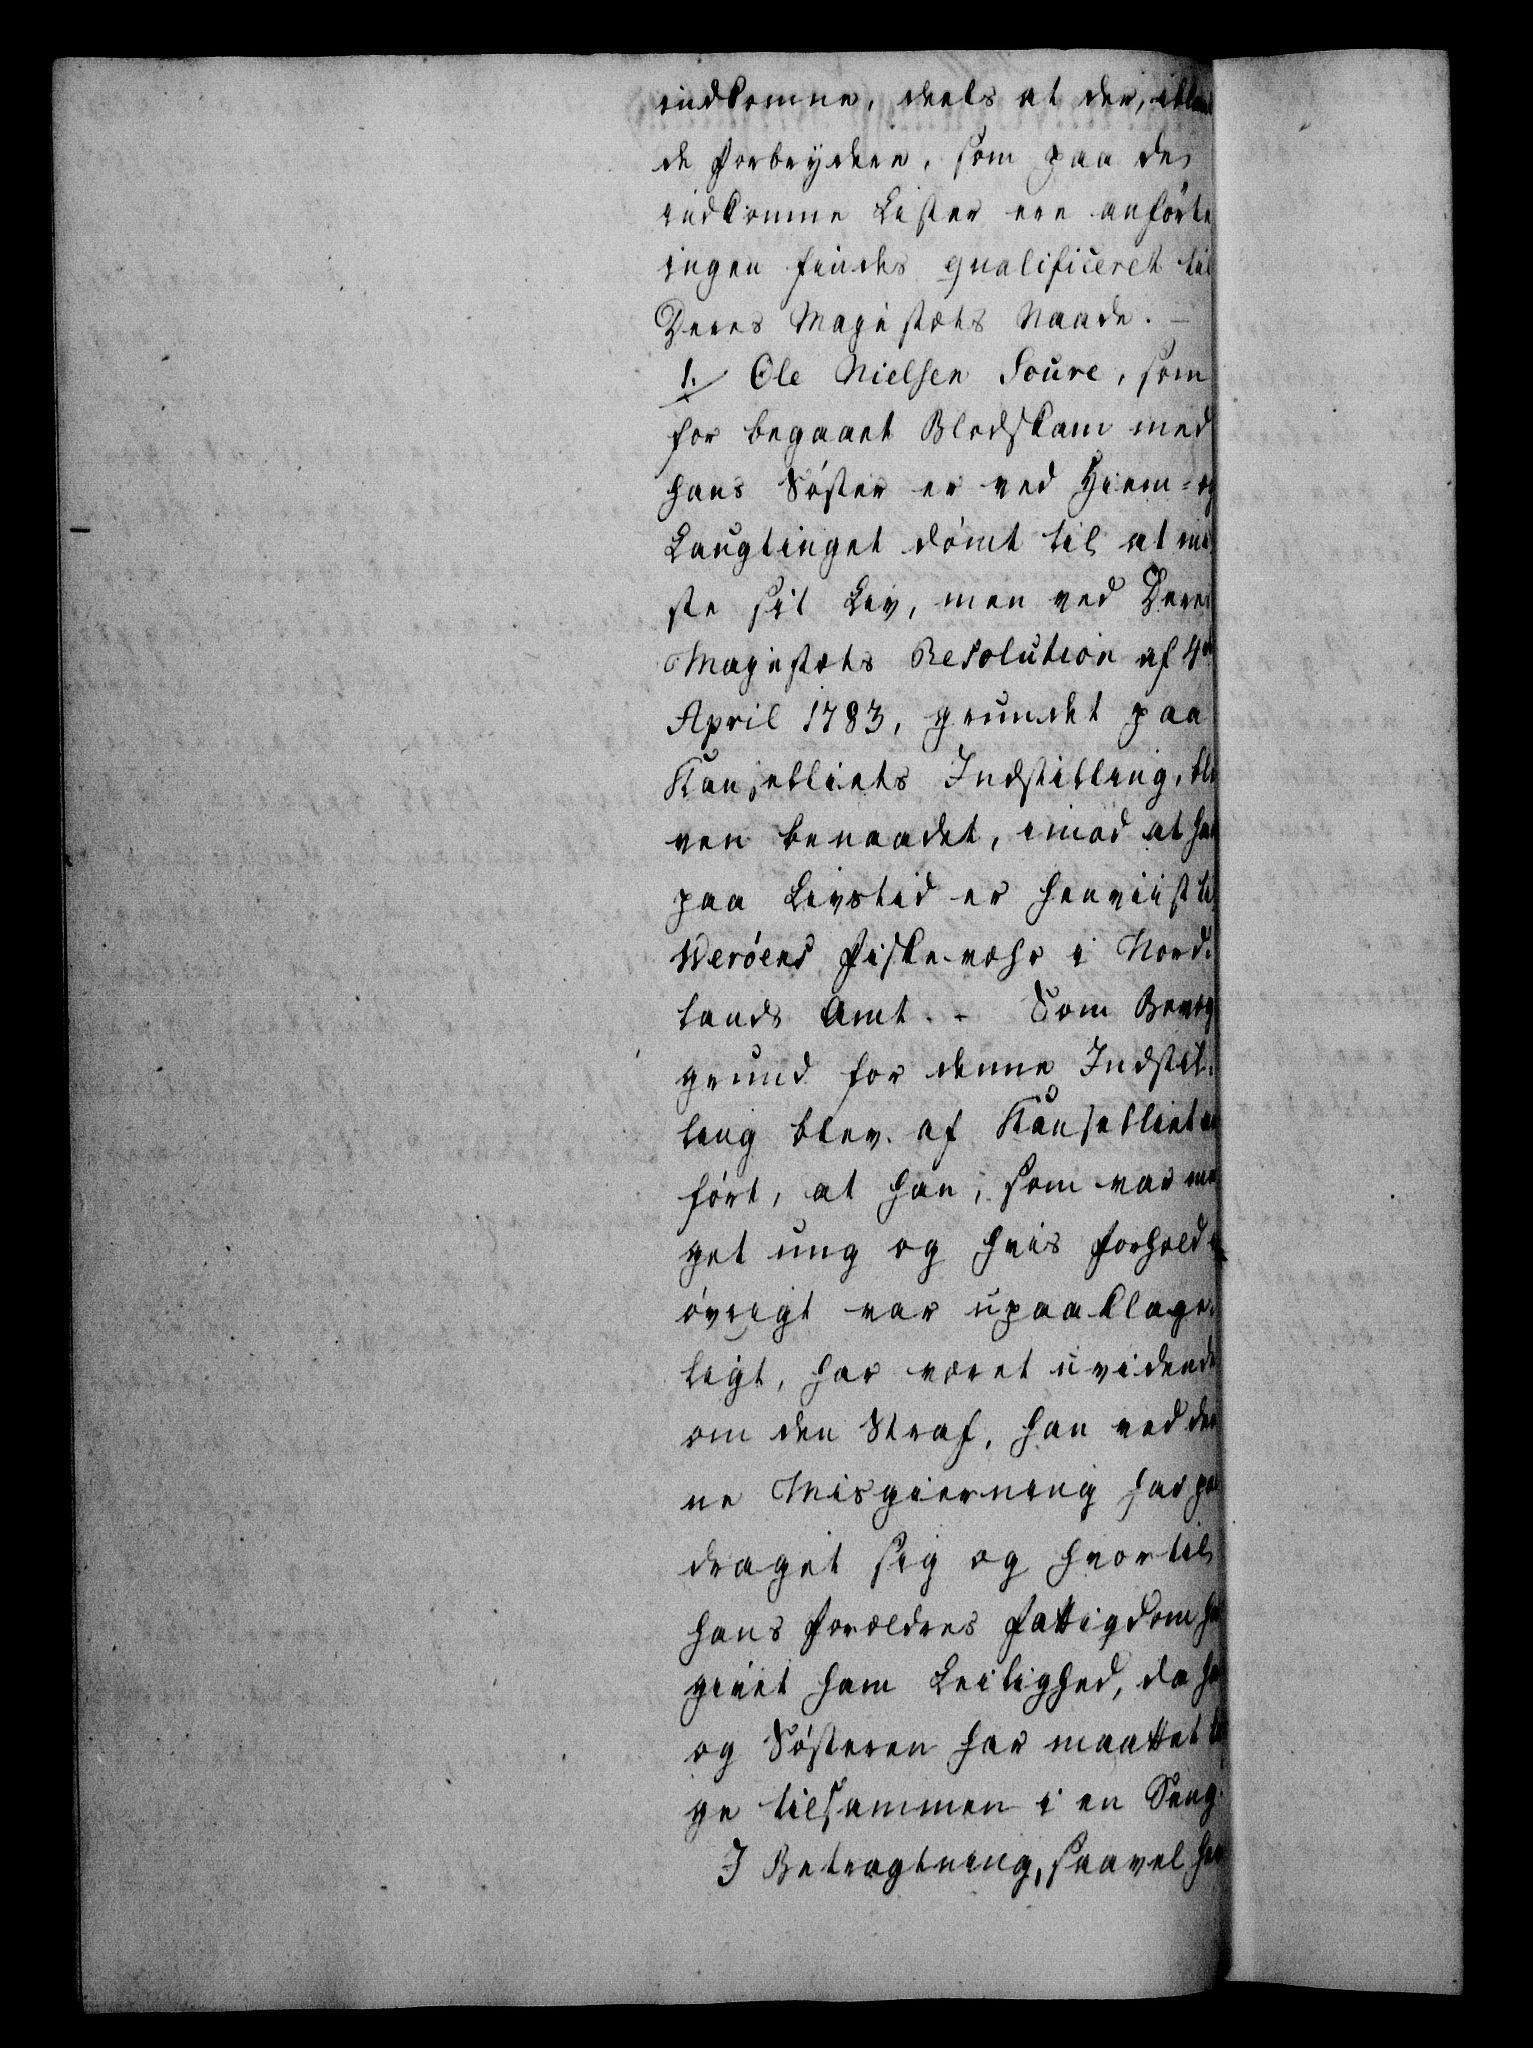 indkomne, deels at der, iblant
de Forbrydere, som paa de
indkomne Lister ere anførte
ingen findes qualificeret til
Deres Majestæts Naade. –
1. Ole Nielsen Soure, som
for begaaet Blodskam med
hans Søster er ved Hiem- og
Laugtinget dømt til at mi
ste sit Liv, men ved Deres
Majestæts Resolution af 4de
April 1783, grundet paa
Kanselliets Indstilling, ble
ven benaadet, imod at han
paa Livstid er henviist til
Werøens Fiskevæhr i Nord-
lands Amt. – Som Bevæg
grund for denne Indstil-
ling blev af Kanselliet an
ført, at han, som var me
get ung og hvis Forhold i
øvrigt var upaaklage-
ligt, har været uvidende
om den Straf, han ved den
ne Misgierning har paa
draget sig og hvortil
hans Forældres Fattigdom har
givet ham Leilighed, da han
og Søsteren har maattet lig
ge tilsammen i en Seng.
I Betragtning, saavel her